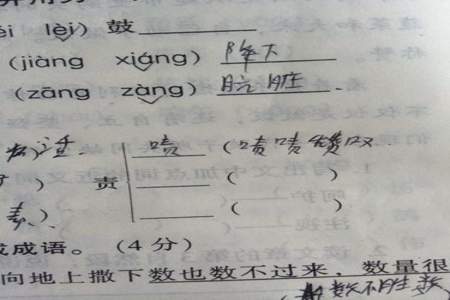 èi lèi) 鼓
(jiàng xiáng) 降下
(zāng zàng) 肮脏
责 啧 (啧啧
) ( )
( )
成语。(4分)
向地上撒下数也数不过来,数量很
数不胜数